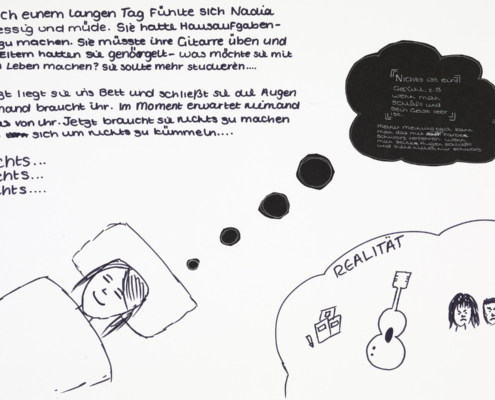 ch einem langen Tag Fühlte sich Nadia
essig und müde. Sie hatte Hausaufgaben-
zu machen. Sie müsste ihre Gitarre üben und
Eltern hatten sie genörgelt- was möchte sie mit
Leben machen? Sie sollte mehr studieren....
zt liegt sie ins Bett und schließt sie die Augen
mand braucht ihr. Im Moment erwartet niemand
as von ihr. Jetzt braucht sie nichts zu machen
sich um nichts zu kümmeln....
chts...
chts...
chts....
Nichts ist ein
Gefühl, z.B
wenn man
schläft und
sein Geist leer
ist.
Meiner Meinung nach kann
man das mit Farbe
Schwarz verbinden wenn
man seine Augen schließt
REALITÄT